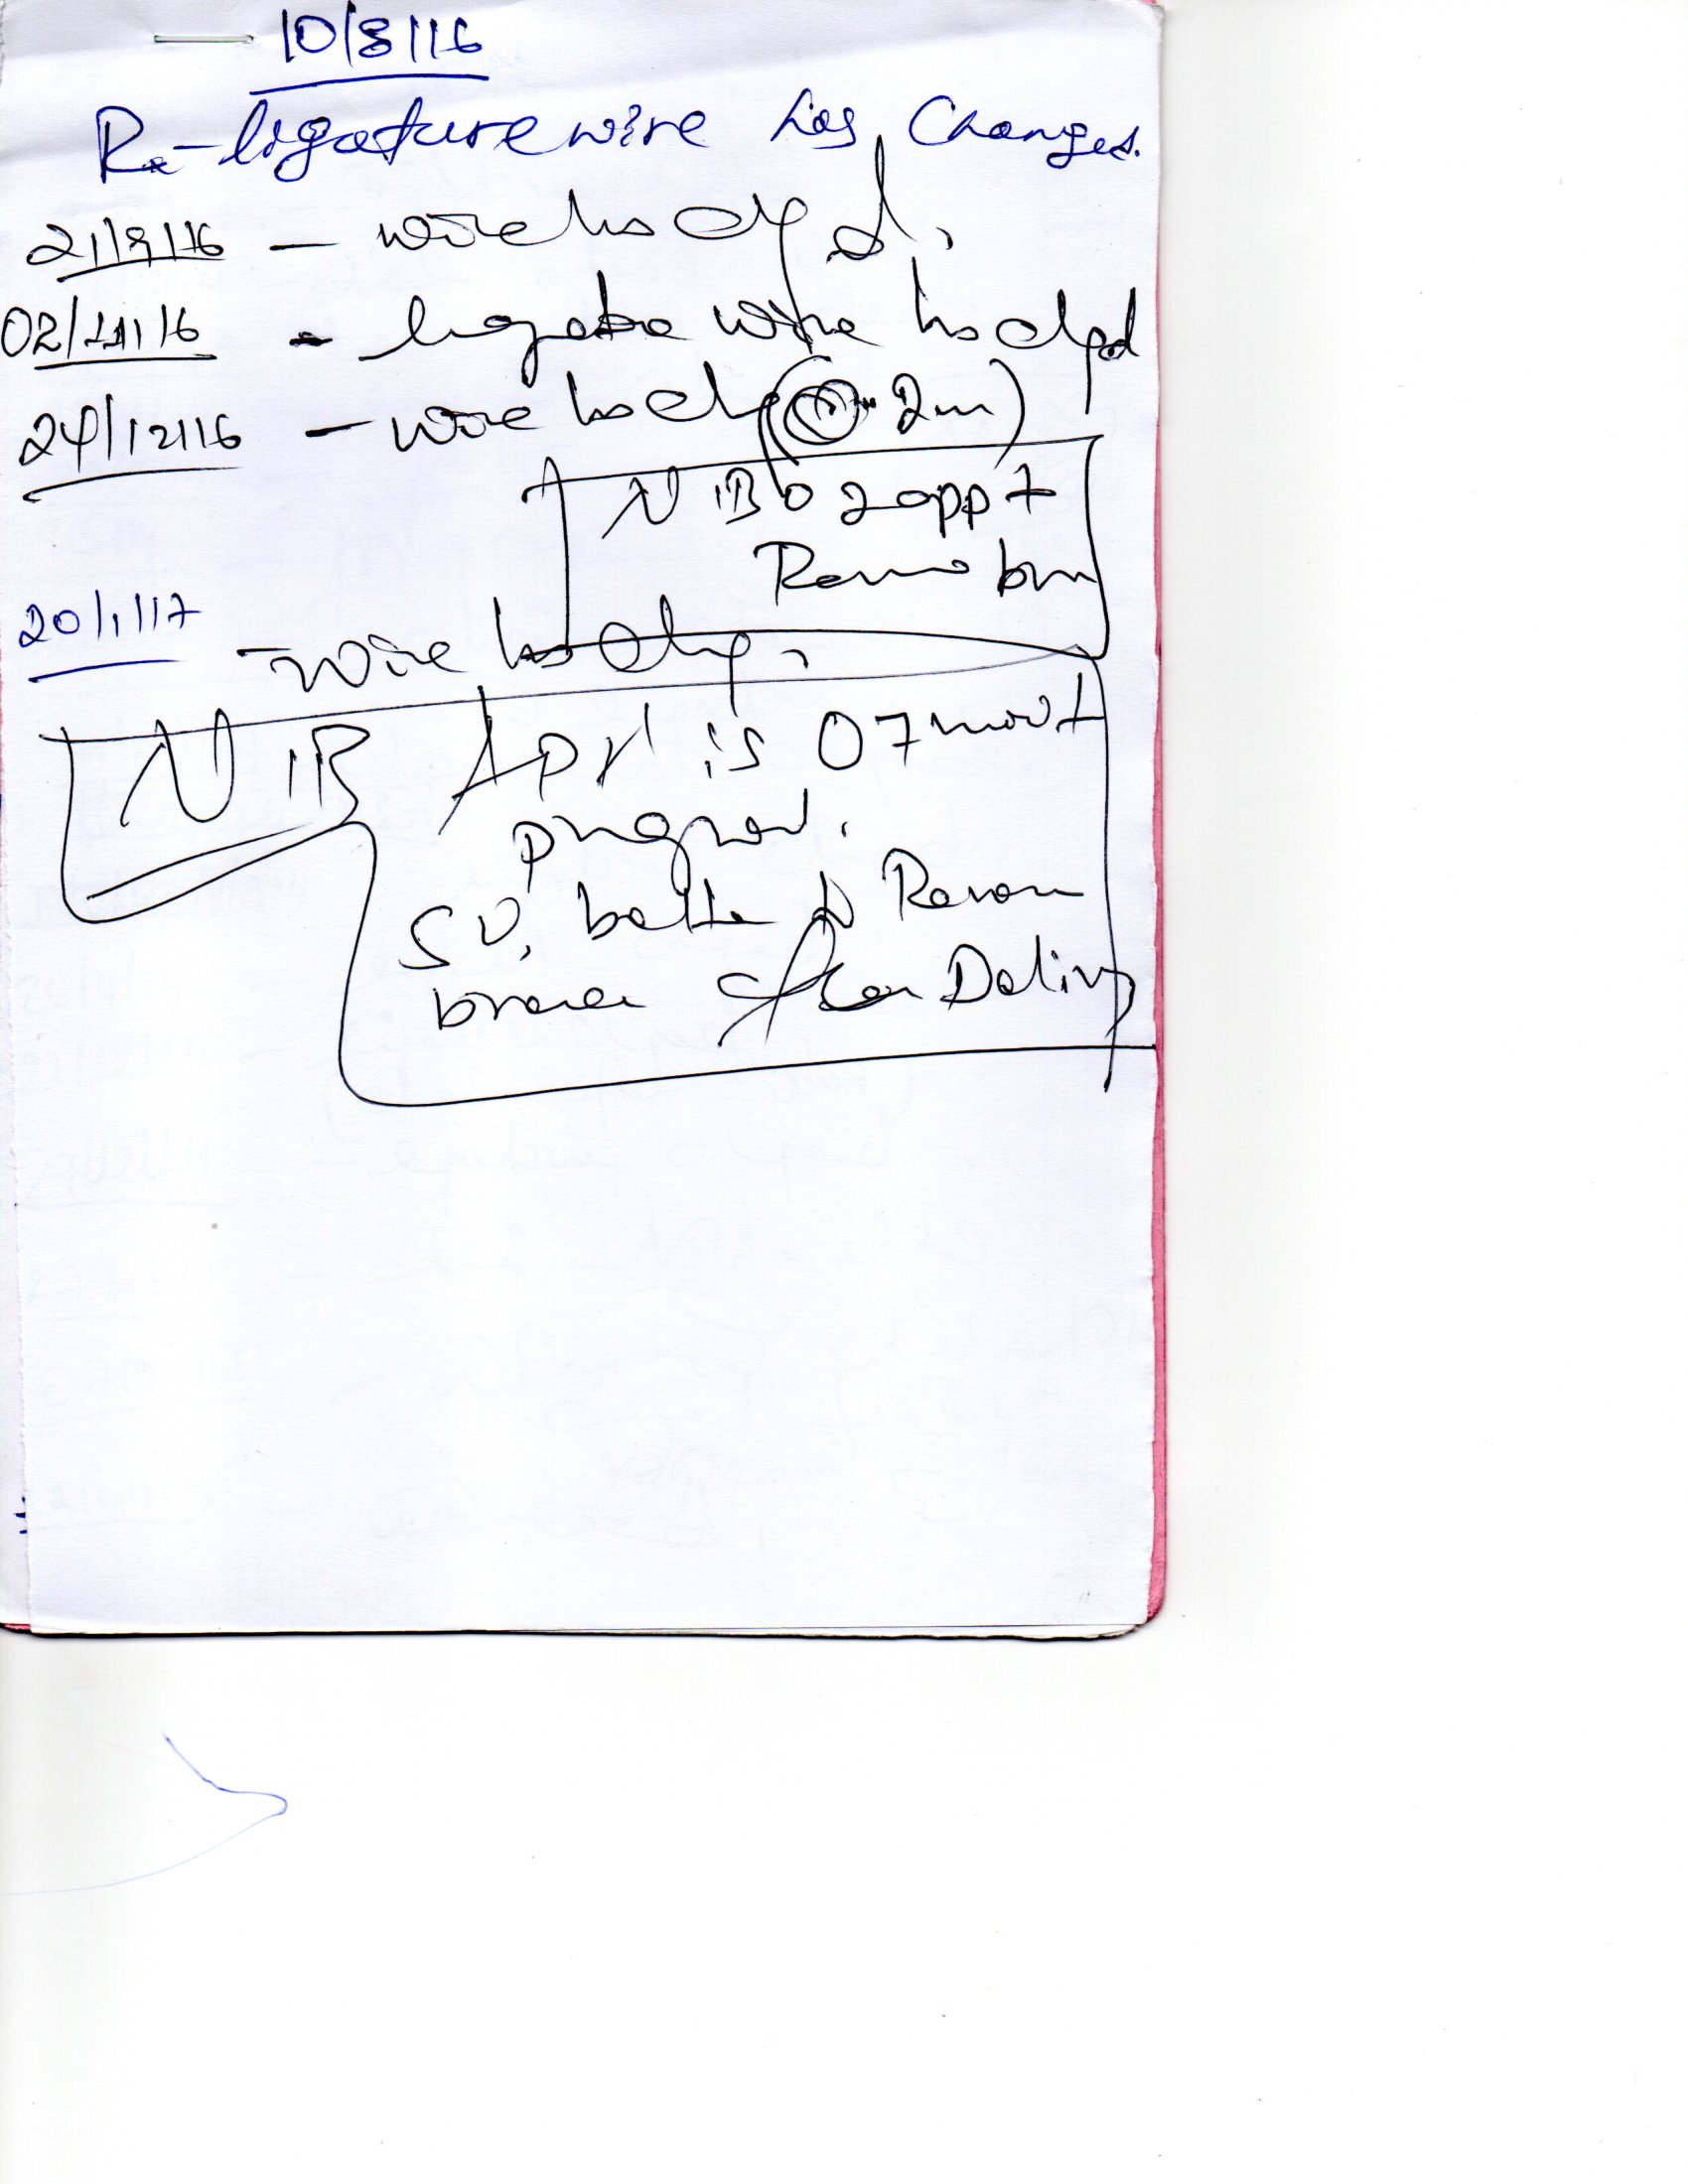 10/8/16
Rx-ligature wire has Changed.
21/9/16 - wire has chgd.
02/11/16 - ligature wire has chgd
24/12/16 - wire has chg ( 2m)
N B 02 appt
Remo
20/1/17 - wire has chg.
N B is 07 mont
pregnant.
So, better to Remove
braces after Delivy